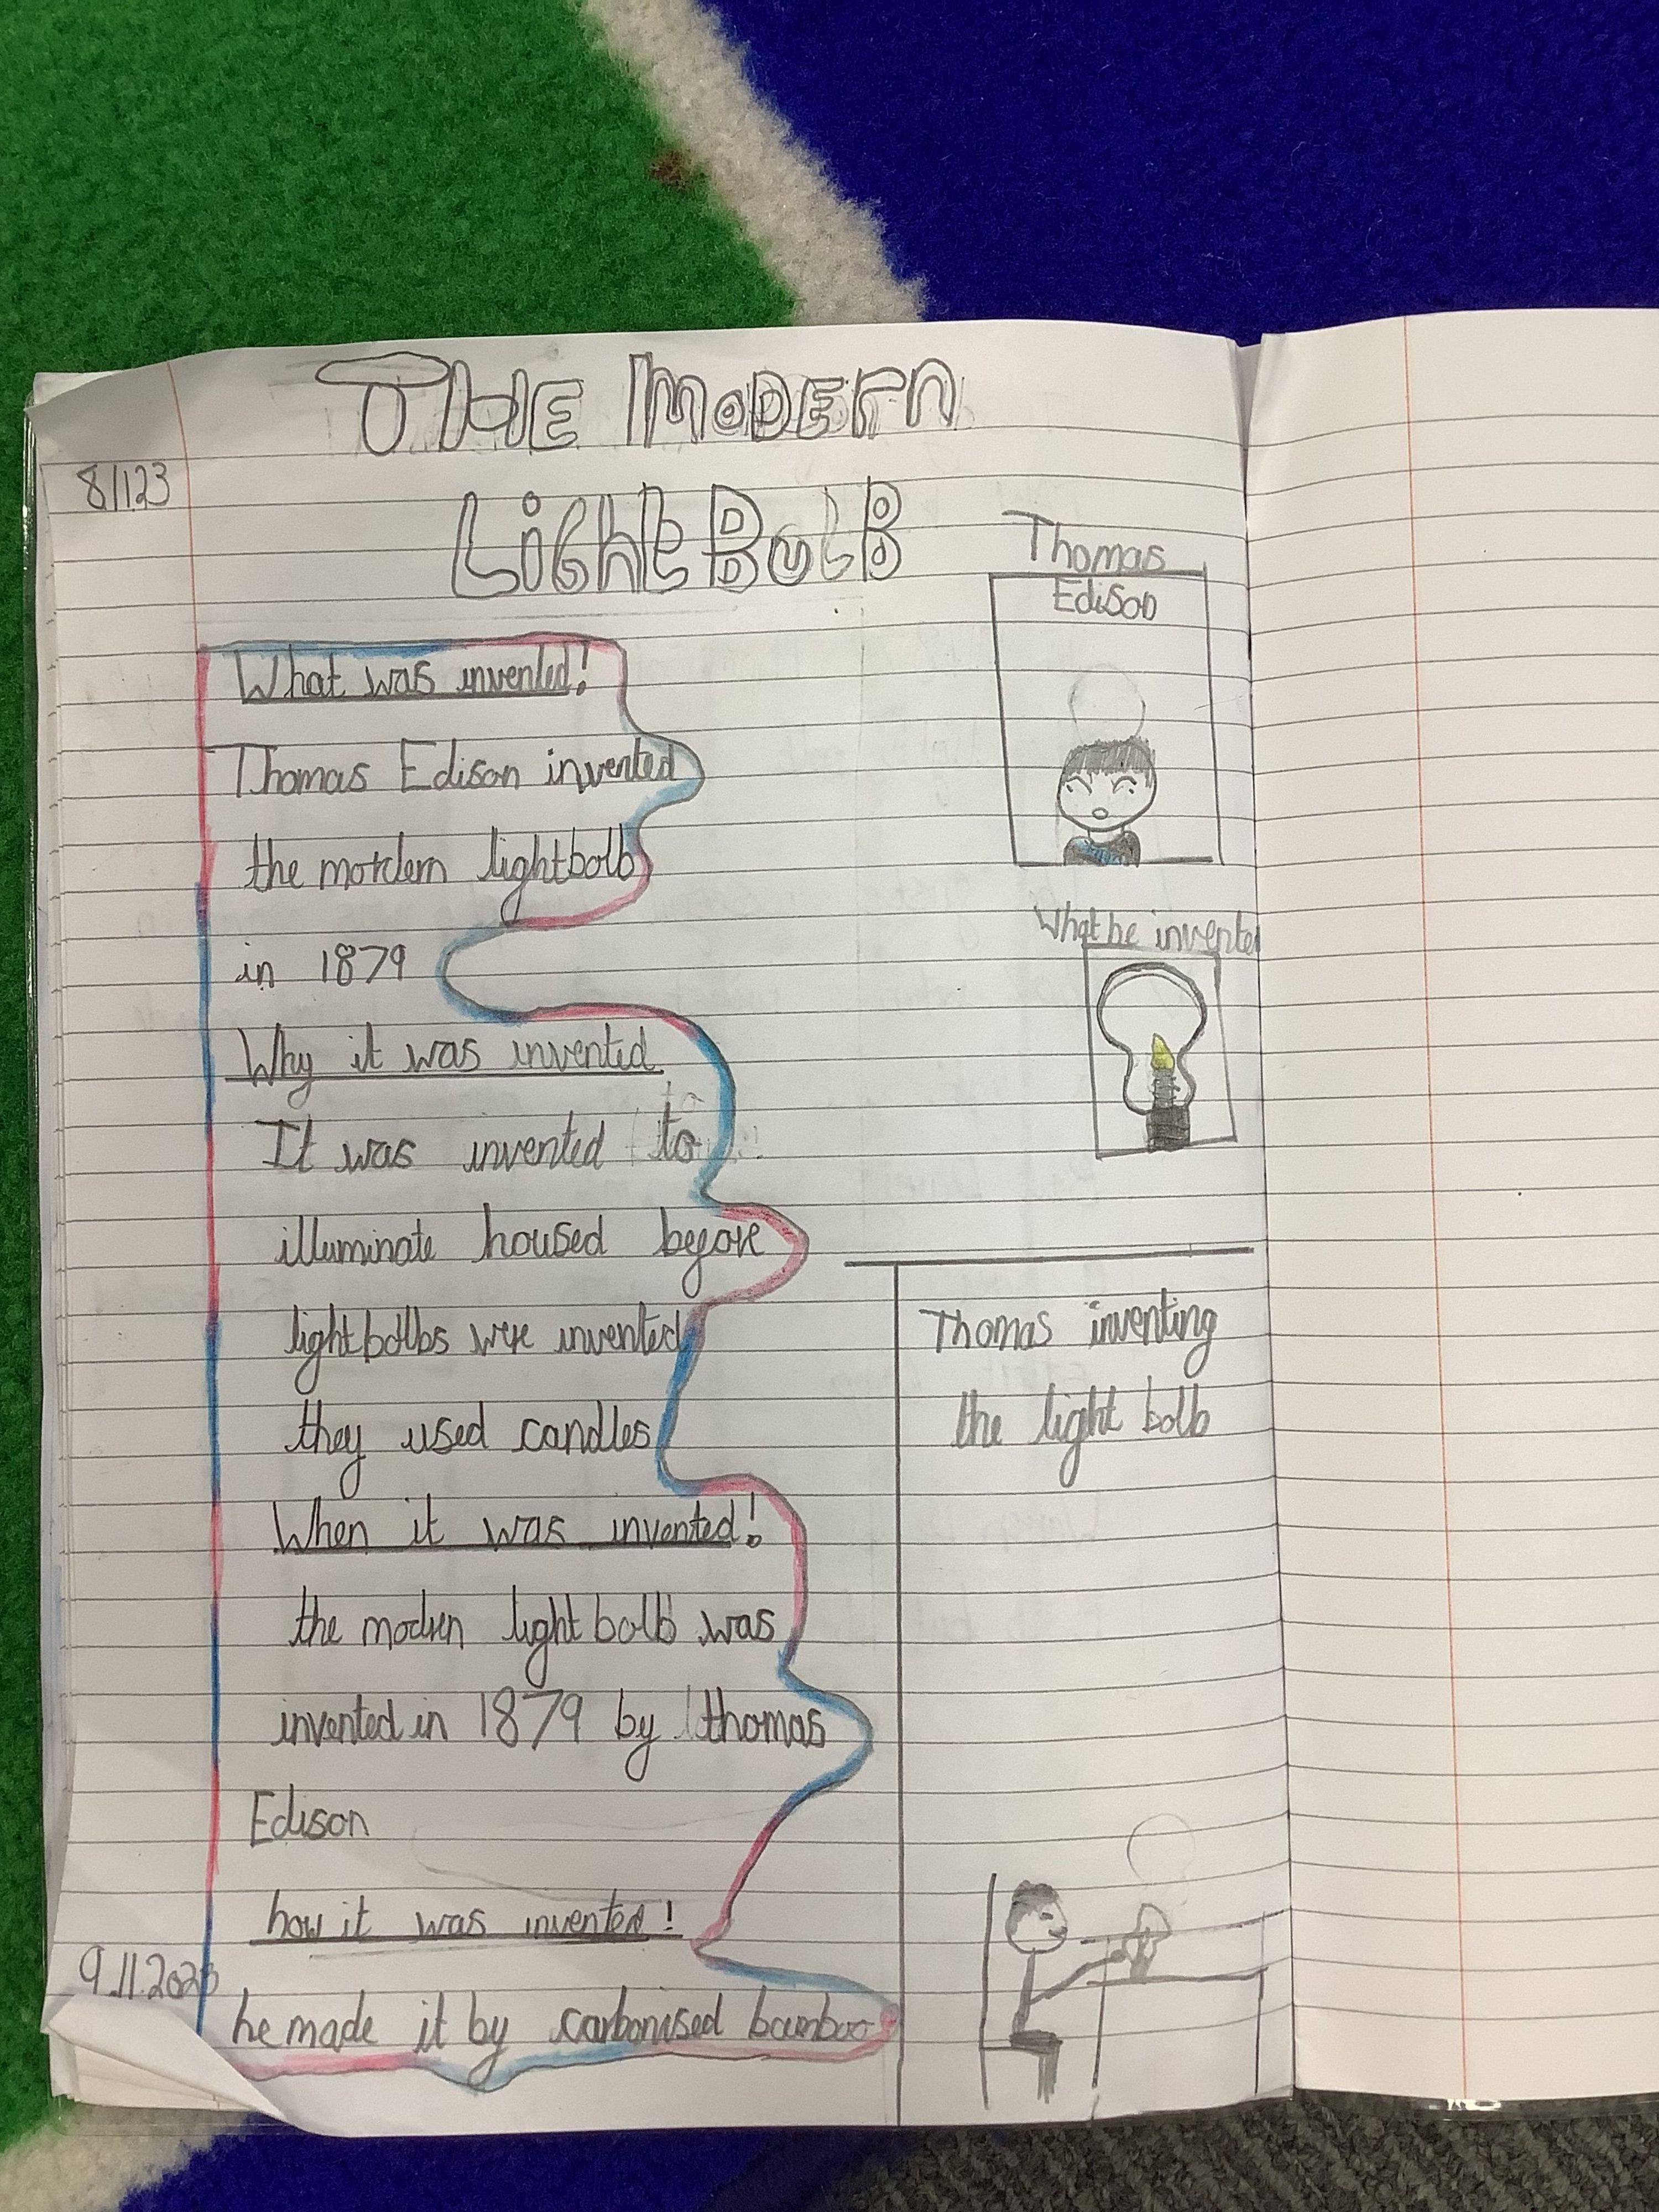 THE MODERN
8/1123
LIGHt BulB
Thomas
Edison
What was invented!
Thomas Edison invented
the mordern lightbolb
in 1879
What he invented
Why it was invented
It was invented to
illuminate housed before
lightbolbs were invented
they used candles
When it was invented!
the modren light bolb was
invented in 1879 by thomas
Edison
how it was invented!
9.11.2023
he made it by carbonised bamboo
Thomas inventing
the light bolb